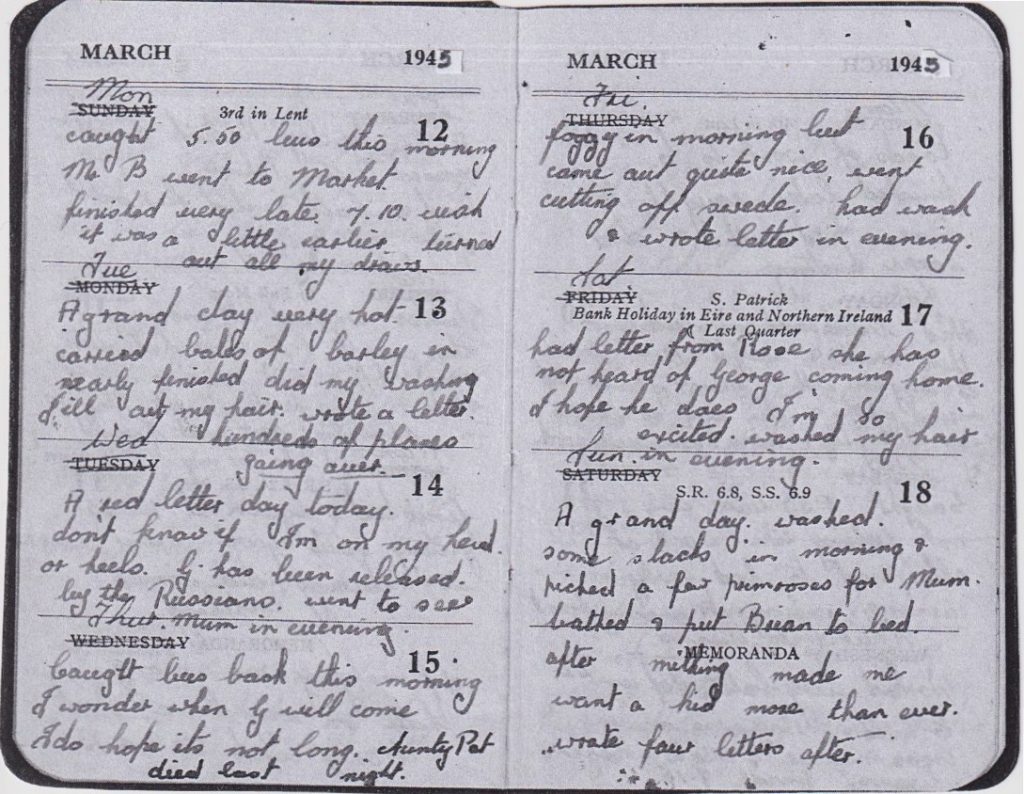 MARCH 1945
Mon
SUNDAY 3rd in Lent
12
caught 5.50 bus this morning
Mr B went to Market.
finished very late. 7.10. wish
it was a little earlier. turned
out all my draws.
Tue
MONDAY
13
A grand day very hot.
carried bales of barley in
nearly finished did my washing
I'll cut my hair. wrote a letter.
hundreds of planes
going over.
Wed
TUESDAY
14
A red letter day today.
don't know if I'm on my head.
or heels. G. has been released.
by the Russians. went to see
Mum in evening.
Thur.
WEDNESDAY
15
Caught bus back this morning
I wonder when G will come
I do hope its not long. Aunty Pat
died last night.
MARCH 1945
Fri.
THURSDAY
16
foggy in morning but
came out quite nice, went
cutting off swede. had wash
& wrote letter in evening.
Sat
FRIDAY
S. Patrick
Bank Holiday in Eire and Northern Ireland
17
Last Quarter
had letter from Rose she has
not heard of George coming home.
I hope he does I'm so
excited. washed my hair
in evening.
Sun.
SATURDAY
S.R. 6.8, S.S. 6.9
18
A grand day. washed.
some slacks in morning &
picked a few primroses for Mum.
bathed & put Brian to bed.
MEMORANDA
after milking made me
want a kid more than ever.
wrote four letters after.